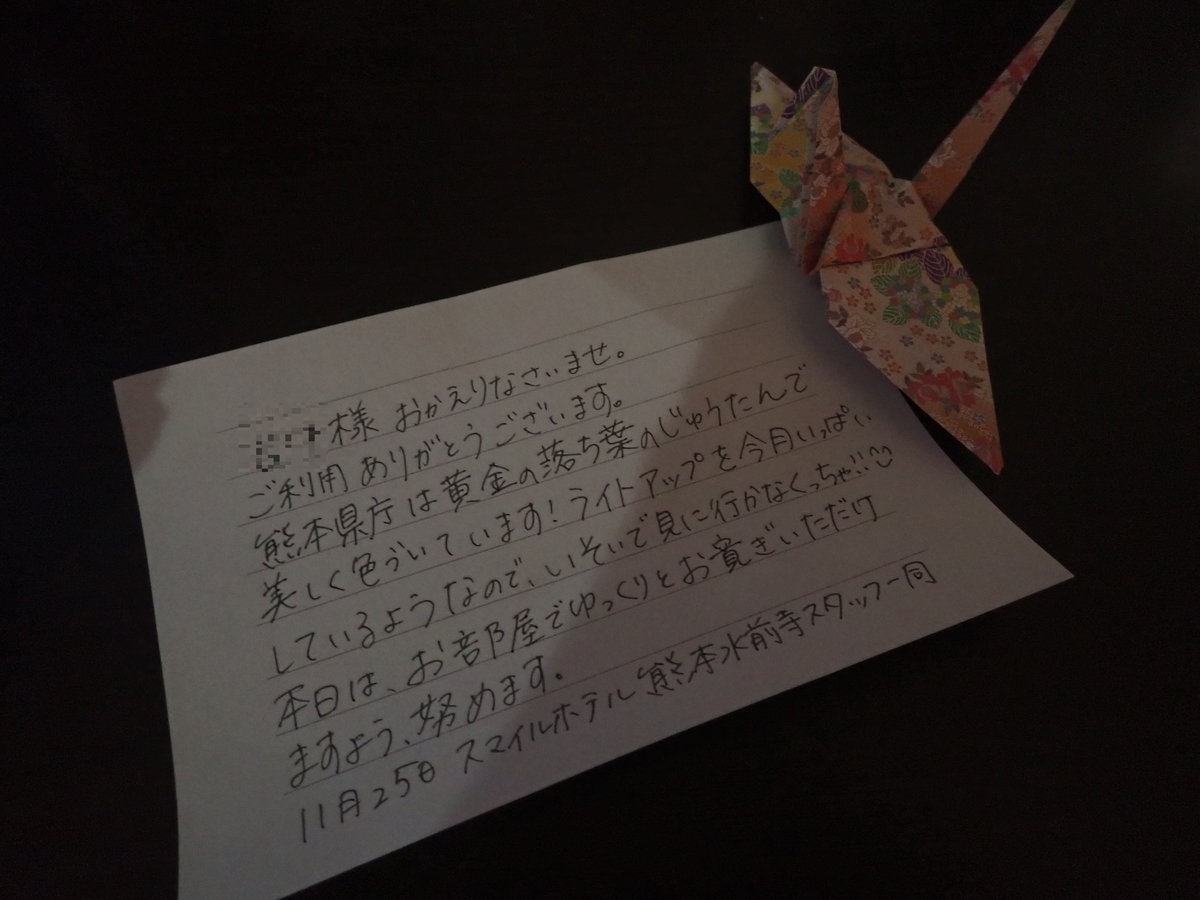 様 おかえりなさいませ。
ご利用ありがとうございます。
熊本県庁は黄金の落ち葉のじゅうたんで
美しく色づいています!ライトアップを今月いっぱい
しているようなので、いそいで見に行かなくっちゃ!!
本日は、お部屋でゆっくりとお寛ぎいただけ
ますよう、努めます。
11月25日 スマイルホテル熊本水前寺スタッフ一同